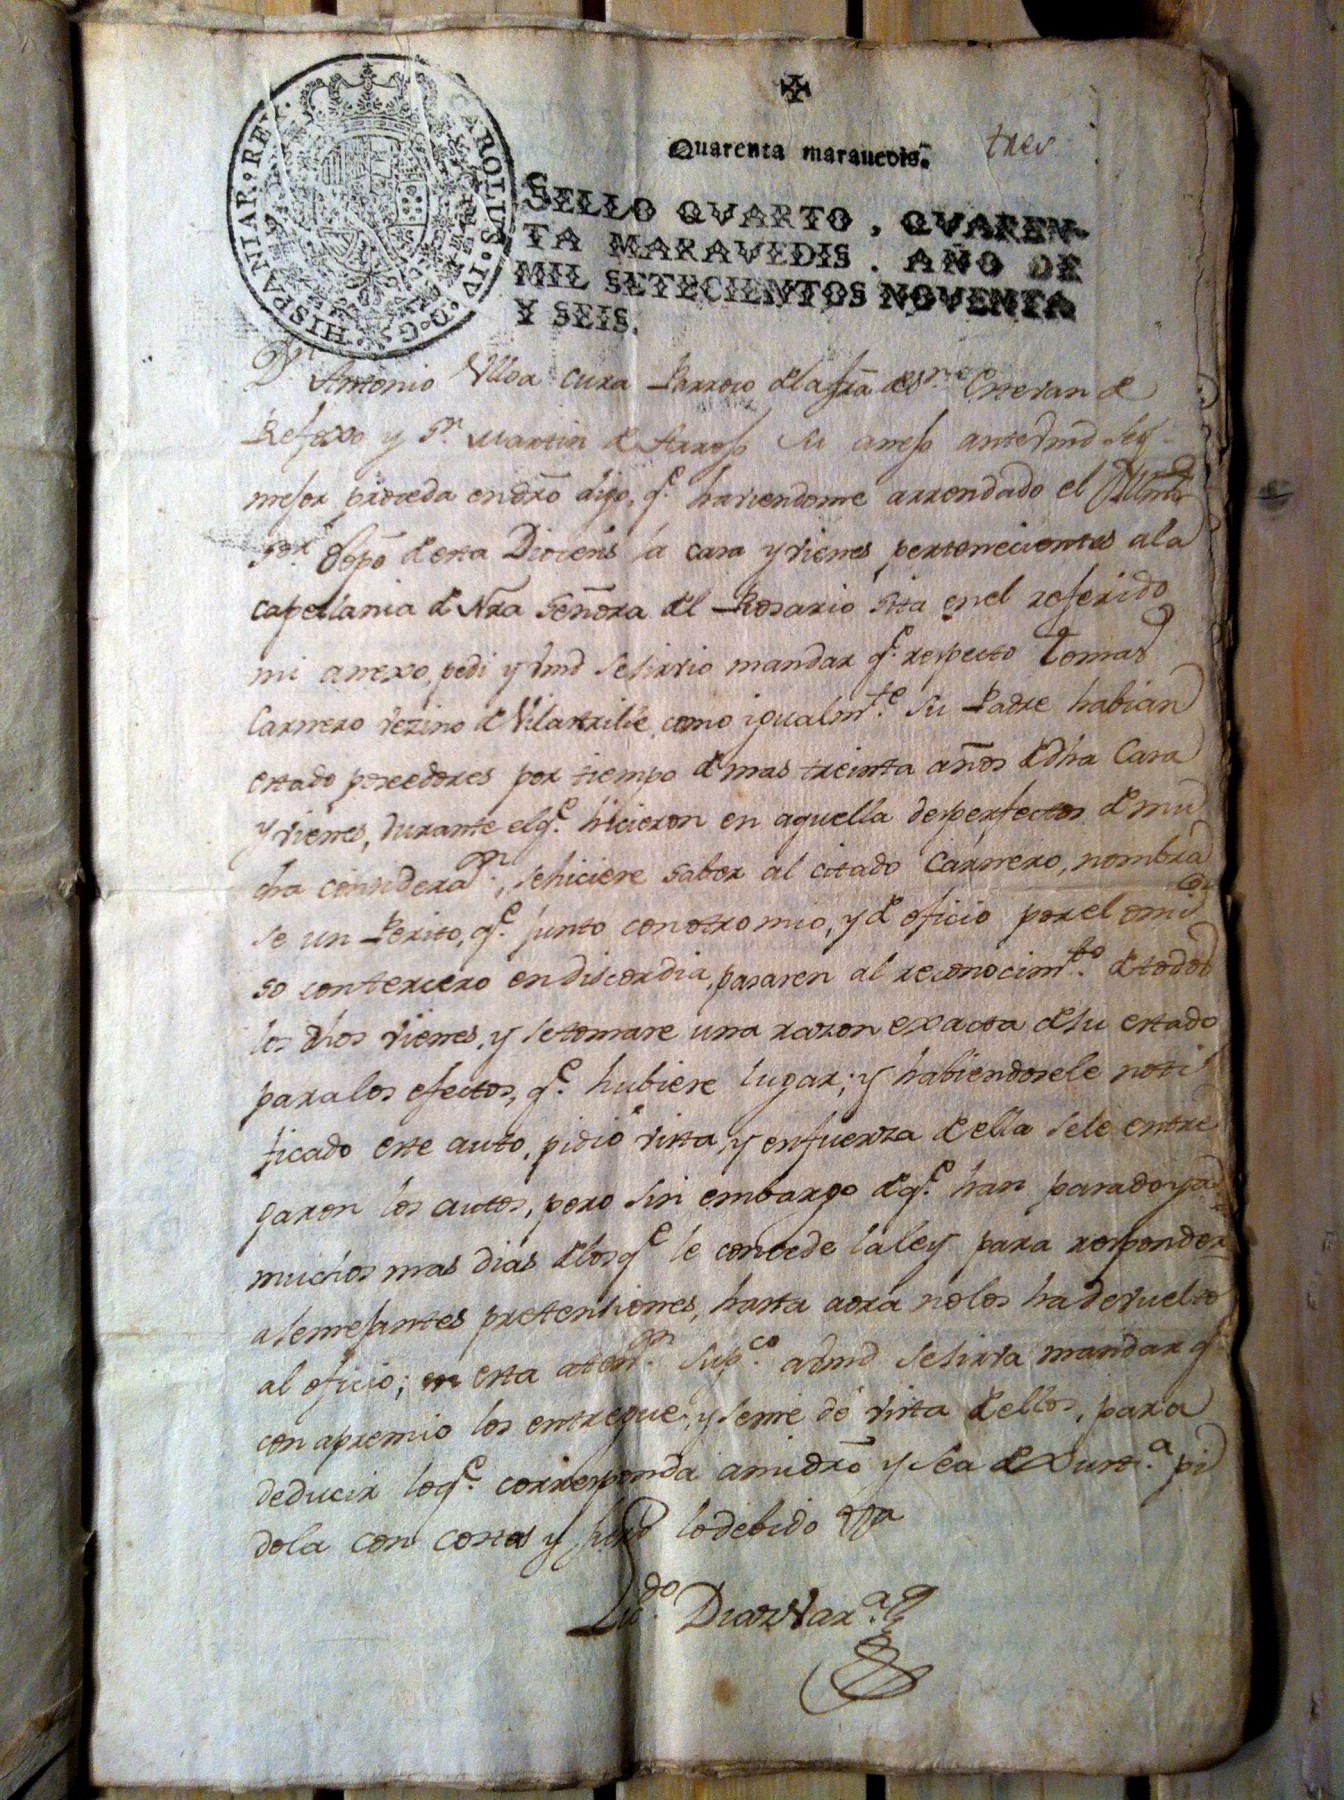 CAROLUS·IV·D·G·HISPANIAR·REX·
Quarenta marauedis.
tres
SELLO QVARTO, QVAREN-
TA MARAVEDIS. AÑO DE
MIL SETECIENTOS NOVENTA
Y SEIS.
Dn
Antonio Ulloa cura Parroco dela frã de Sn Estevan de
Refoxo y Sn Martin de Arroxo su anexo antevmd seg.
mejor proceda endro digo, q.e haviendome arrendado el Yllmo
Sor Obpõ de esta Diocesis la casa y vienes pertenecientes ala
capellania de Nra Señora del Rosario sita enel referido
mi anexo, pedi y vmd sesirvio mandar q.e respecto Tomas
Carnero vezino de Vilartrilie, como igualm.te su Padre habian
estado poseedores por tiempo de mas treinta años de dha Casa
y vienes, durante elq.e hicieron en aquella desperfectos de mu
cha considera.on, sehiciere saber al citado Carnero, nombra
se un Perito, q.e junto conotro mio, y de oficio porel omi
so contercero en discordia, pasasen al reconocim.to de todos
los dhos vienes, y setomare una razon exacta desu estado
paralos efectos, q.e hubiere lugar; y habiendosele noti
ficado este auto, pidio vista, y enfuerza de ella sele entre
garon los autos, pero sin embargo de q.e han pasado ya
muchos mas dias delosq.e le concede laley para responder
asemejantes pretensiones, hasta aora nolos hadevuelto
al oficio; en esta aten.on sup.co avmd sesirva mandar q.e
con apremio los entregue, y seme dé vista de ellos, para
deducir loq.e corresponda amidro y sea de Xust.a pi
dola con costas y juro lodebido Vta
Lic.do Diaz Var.a